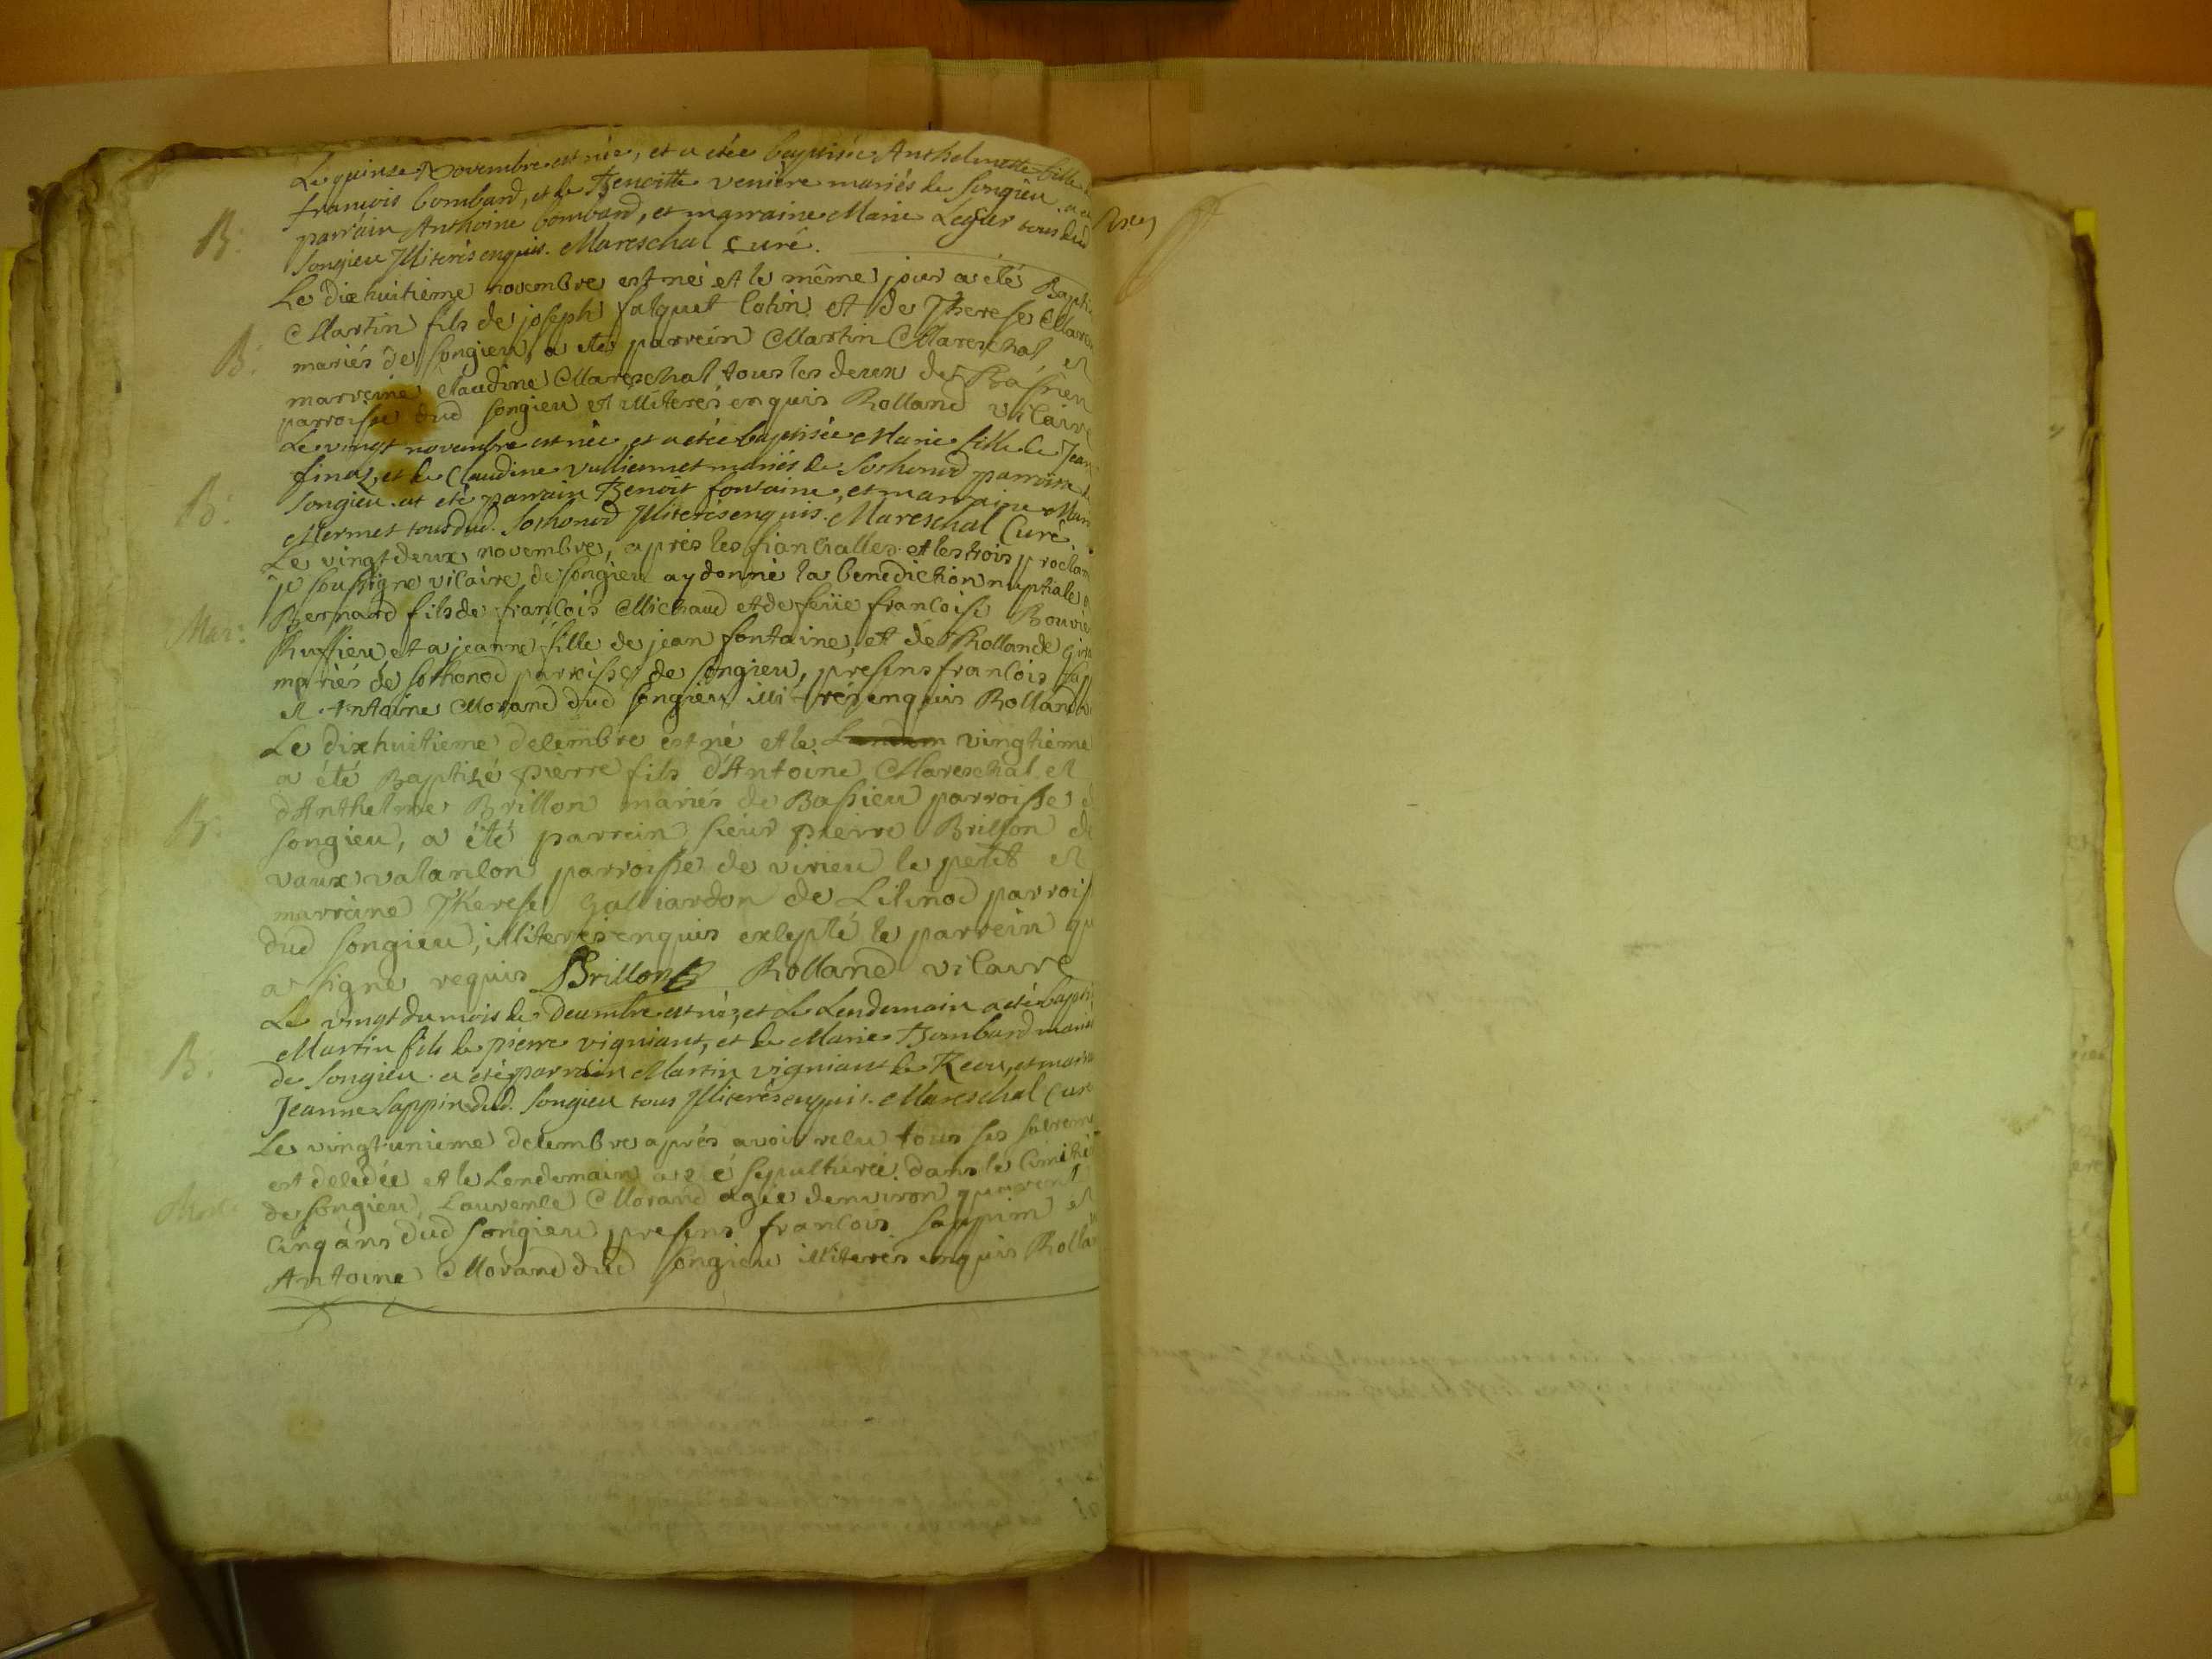 Le quinze Novembre est née, et a etée baptisée Anthelmette fille
francois bombard, et de Benoitte veniere mariés de songieu. a e
B: parrain Anthoine bombard, et marraine Marie Leger tous dud
songieu Illiterés enquis. Mareschal Curé.
Le dixhuitieme novembre est né et le même jour a été Bapti
Martin fils de joseph falquet Colin et de Therese Mares
B: mariés de songieu, a été parrein Martin Mareschal et
marreine Claudine Mareschal tous les deux de Bassieu
parroisse dud songieu et illiterés enquis Rolland vicaire
Le vingt novembre est née, et a etée baptisée Marie fille de Jean
finaz, et de Claudine vulliermet mariés de sothonod parroisse de
B: songieu. at eté parrain Benoit fontaine, et marraine Mari
Mermet tous dud. sothonod Illiterés enquis. Mareschal Curé.
Le vingt deux novembre, aprés les fiancialles et les trois proclam
je soussigné vicaire de songieu ay donné la benediction nuptiale a
Bernard fils de françois Michaud et de feüe francoise Bouvie
Mar: Ruffieu et a jeanne fille de jean fontaine, et de Rollande gira
mariés de sothonod parroisse de songieu, presens francois sap
et Antoine Morand dud songieu illiterés enquis Rolland
Le dixhuitieme decembre est né et le vingtieme
a été Baptizé pierre fils d'Antoine Mareschal et
d'Anthelme Brillon mariés de Bassieu parroisse d
B: songieu, a été parrein sieur pierre Brillon de
vaux valancon parroisse de virieu le petit et
marreine Therese Galliardon de Lilinod parroiss
dud songieu, illiterés enquis excepté le parrein qu
a signé requis Brillon Rolland vicaire
Le vingt du mois de Decembre est né, et Le Lendemain a eté bapti
Martin fils de pierre vigniant, et de Marie Bombard marié
B. de songieu. a eté parrain Martin vigniant de , et marra
Jeanne sappin dud. songieu tous Illiterés enquis. Mareschal Curé
Le vingt unieme decembre aprés avoir recu tous ses sacreme
est decedée et le Lendemain a eté sepulturée dans le Cimitie
Mort: de songieu, Laurence Morand agée denviron quarent
cinq ans dud songieu presens francois sappin et
Antoine Morand dud songieu illiterés enquis Rolla